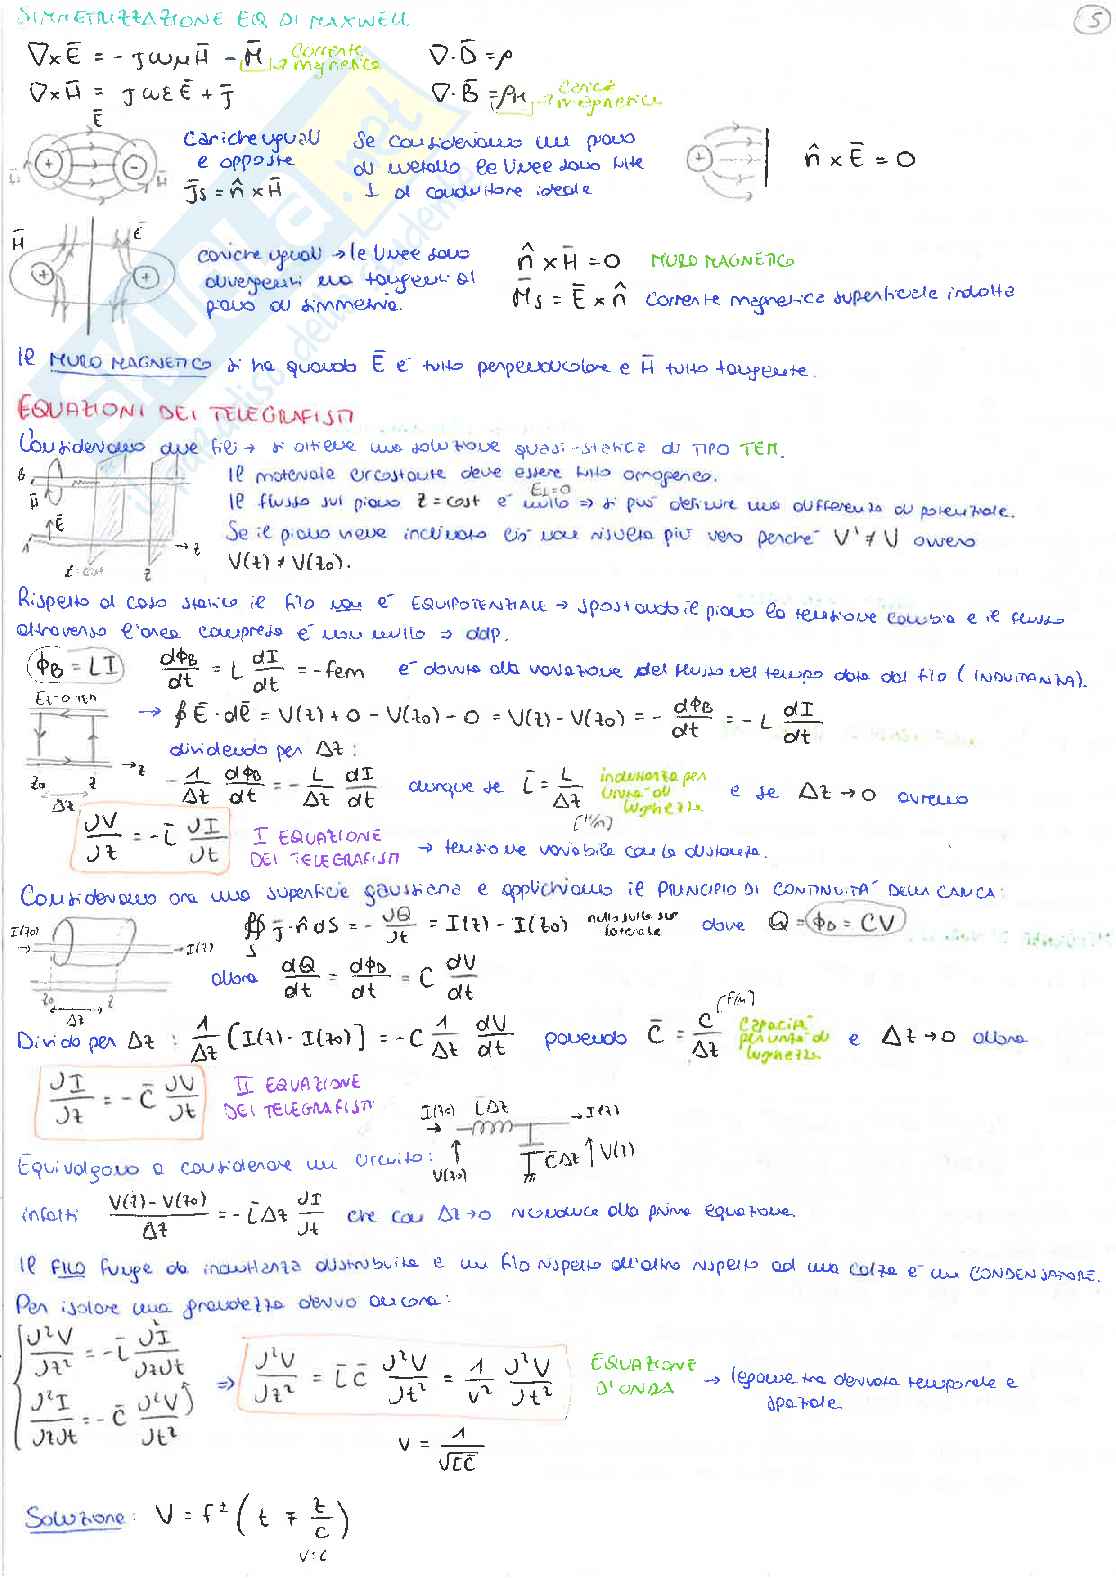 SIMMETRIZZAZIONE EQ DI MAXWELL
5
∇×Ē = -jωμH̄ - M̄ → corrente magnetica
∇·D̄ = ρ
∇×H̄ = jωεĒ + J̄
∇·B̄ = ρM → carica magnetica
Ē
H̄
H̄
+
-
Cariche uguali e opposte
J̄s = n̂ × H̄
Se consideriamo un piano
di metallo le linee sono tutte
⊥ al conduttore ideale
+
n̂ × Ē = 0
H̄
Ē
+
+
cariche uguali → le linee sono
divergenti ma tangenti al
piano di simmetria.
n̂ × H̄ = 0 MURO MAGNETICO
M̄s = Ē × n̂ corrente magnetica superficiale indotta
Il MURO MAGNETICO si ha quando Ē è tutto perpendicolare e H̄ tutto tangente.
EQUAZIONI DEI TELEGRAFISTI
Consideriamo due fili → si ottiene una soluzione quasi-statica di TIPO TEM.
Il materiale circostante deve essere tutto omogeneo.
Il flusso sul piano z = cost è nullo ⇒ si può definire una differenza di potenziale.
Se il piano viene inclinato ciò non risulta più vero perché V' ≠ V ovvero
V(z) ≠ V(z₀).
B
H̄
Ē
A
z
z=cost
z
Rispetto al caso statico il filo non è EQUIPOTENZIALE → spostando il piano la tensione cambia e il flusso
attraverso l'area compresa è non nullo ⇒ ddp.
ΦB = LI
dΦB/dt = L dI/dt = -fem è dovuta alla variazione del flusso nel tempo data dal filo (INDUTTANZA).
→ ∮ Ē·dl̄ = V(z) + 0 - V(z₀) - 0 = V(z) - V(z₀) = - dΦB/dt = -L dI/dt
z₀ z z
Δz
dividendo per Δz :
- 1/Δz dΦB/dt = - L/Δz dI/dt dunque se L̄ = L/Δz [H/m] induttanza per unità di lunghezza e se Δz → 0 avremo
∂V/∂z = -L̄ ∂I/∂t
I EQUAZIONE
DEI TELEGRAFISTI → tensione variabile con la distanza.
Consideriamo ora una superficie gaussiana e applichiamo il PRINCIPIO DI CONTINUITÀ DELLA CARICA:
I(z₀)
I(z)
z₀ z
Δz
∯S J̄·n̂ dS = - ∂Q/∂t = I(z) - I(z₀) nullo sulla sup laterale dove Q = ΦD = CV
allora dQ/dt = dΦD/dt = C dV/dt
Divido per Δz : 1/Δz [I(z) - I(z₀)] = -C 1/Δz dV/dt ponendo C̄ = C/Δz [F/m] capacità per unità di lunghezza e Δz → 0 allora
∂I/∂z = -C̄ ∂V/∂t
II EQUAZIONE
DEI TELEGRAFISTI
I(z₀) L̄Δz I(z)
V(z₀)
C̄Δz V(z)
Equivalgono a considerare un circuito:
infatti V(z) - V(z₀)/Δz = -L̄Δz ∂I/∂t che con Δz → 0 riconduce alla prima equazione.
Il FILO funge da induttanza distribuita e un filo rispetto all'altro rispetto ad una calza è un CONDENSATORE.
Per isolare una grandezza derivo ancora:
∂²V/∂z² = -L̄ ∂I/∂z∂t
∂²I/∂z∂t = -C̄ ∂²V/∂t²
⇒ ∂²V/∂z² = L̄C̄ ∂²V/∂t² = 1/v² ∂²V/∂t²
EQUAZIONE
D'ONDA → legame tra derivata temporale e
spaziale.
v = 1/√L̄C̄
Soluzione: V = f± (t ∓ z/c)
v=c